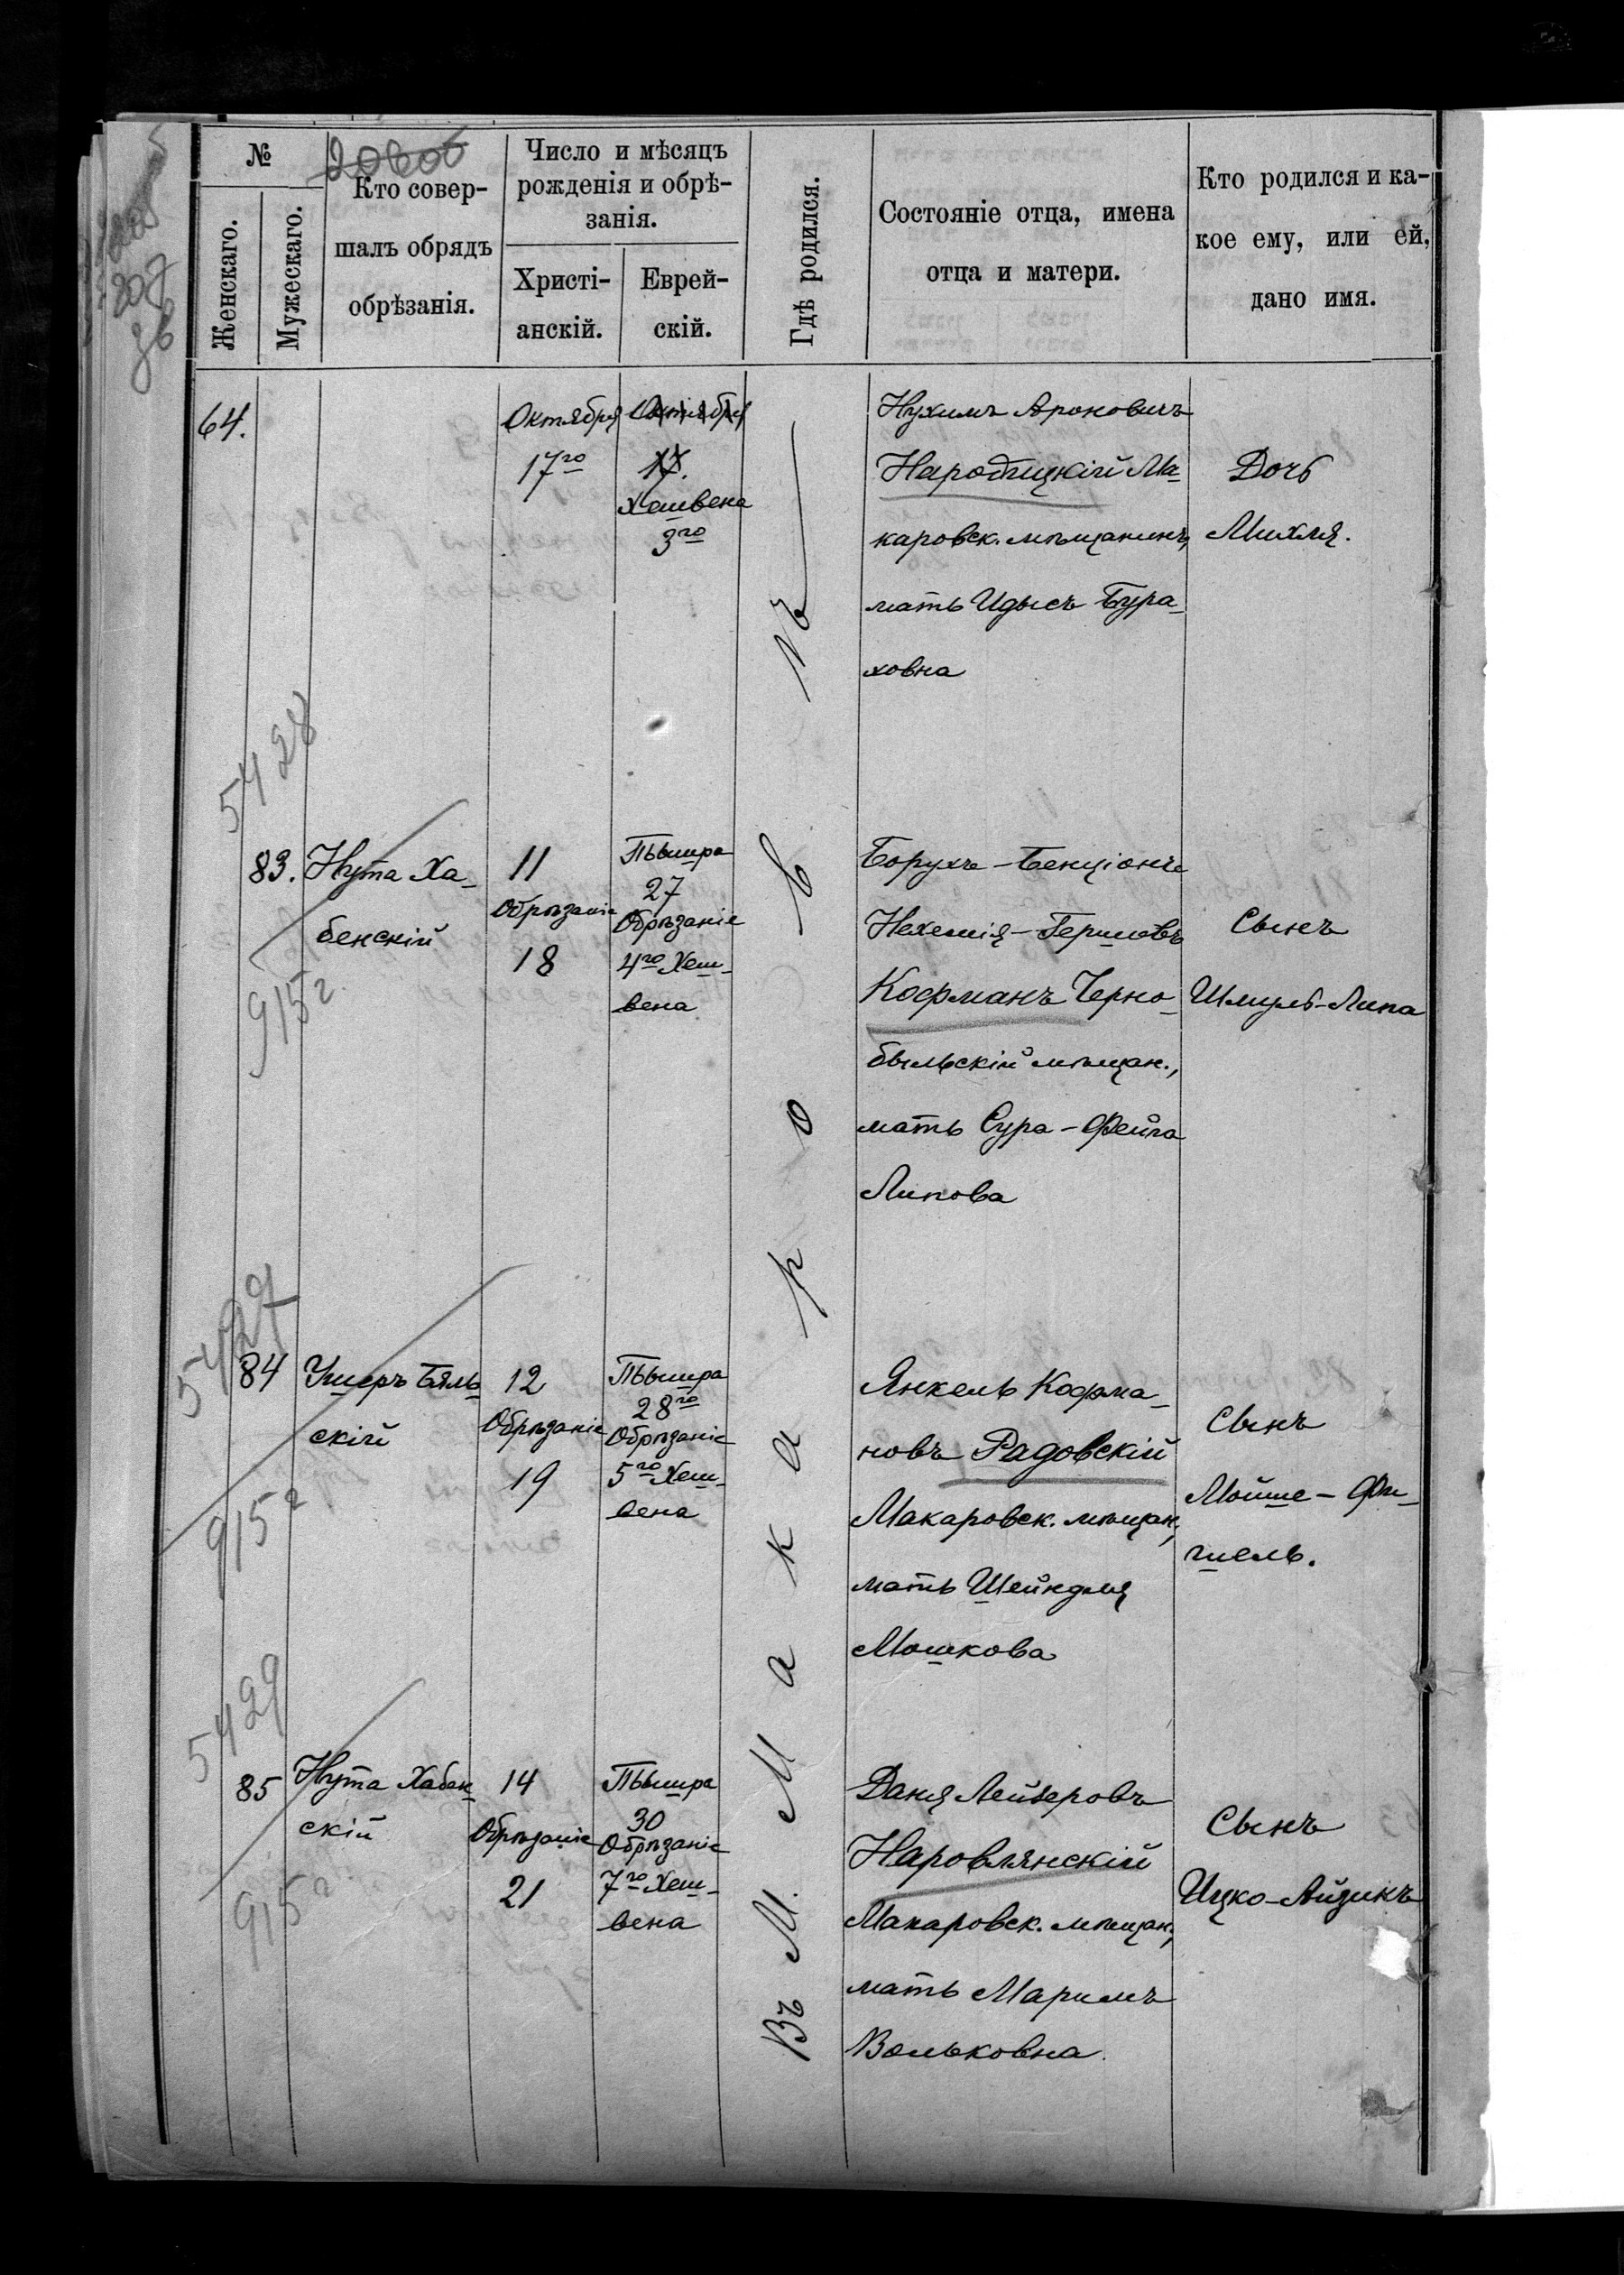 №
20606
Женскаго.
Мужескаго.
Кто совер-
шалъ обрядъ
обрѣзанія.
Число и мѣсяцъ
рожденія и обрѣ-
занія.
Христі-
анскій.
Еврей-
скій.
Гдѣ родился.
Состояніе отца, имена
отца и матери.
Кто родился и ка-
кое ему, или ей,
дано имя.
207
Въ М. Макаровъ
64.
Октября
17го
Октября
17.
Хешвена
3го
Нухимъ Ароновичъ
Народицкій Ма-
каровск. мѣщанинъ,
мать Идысъ Бура-
ховна
Дочь
Михля.
5428
83.
915 г
Нута Ха-
бенскій
11
Обрѣзаніе
18
Тышра
27
Обрѣзаніе
4го Хеш-
вена
Борухъ-Бенціонъ
Нехемія-Гершовъ
Кофманъ Черно-
быльскій мѣщан.,
мать Сура-Фейга
Липова
Сынъ
Шмуль-Липа
5429
84
915 г
Ушеръ Бяль-
скій
12
Обрѣзаніе
19
Тышра
28го
Обрѣзаніе
5го Хеш-
вена
Янкель Кофма-
новъ Радовскій
Макаровск. мѣщан.,
мать Шейндля
Мошкова
Сынъ
Мойше-Фи-
шель.
5429
85
915 г
Нута Хабен-
скій
14
Обрѣзаніе
21
Тышра
30
Обрѣзаніе
7го Хеш-
вена
Даня Лейзеровъ
Наровлянскій
Макаровск. мѣщан.,
мать Маримъ
Вольковна.
Сынъ
Ицко-Айзикъ